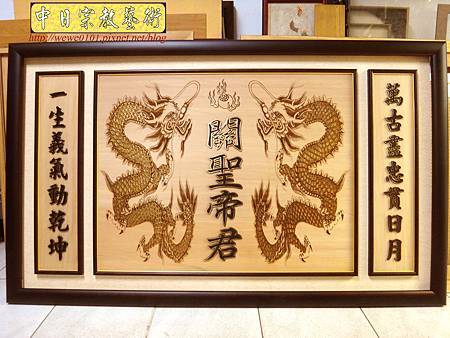 中日宗教藝術
http://wewe0101.pixnet.net/blog
萬古盡忠貫日月
關聖帝君
一生義氣動乾坤